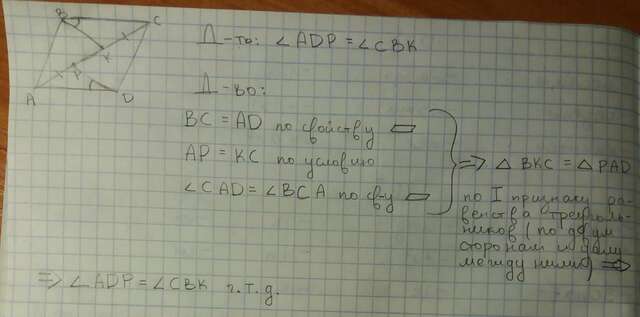 B
C
K
P
A
D
Д-ть: ∠ADP = ∠CBK
Д-во:
BC = AD по свойству ▱
AP = KC по условию
∠CAD = ∠BCA по св-у ▱
⇒ △ BKC = △ PAD
по I признаку ра-
венства треуголь-
ников (по двум
сторонам и углу
между ними) ⇒
⇒ ∠ADP = ∠CBK ч.т.д.